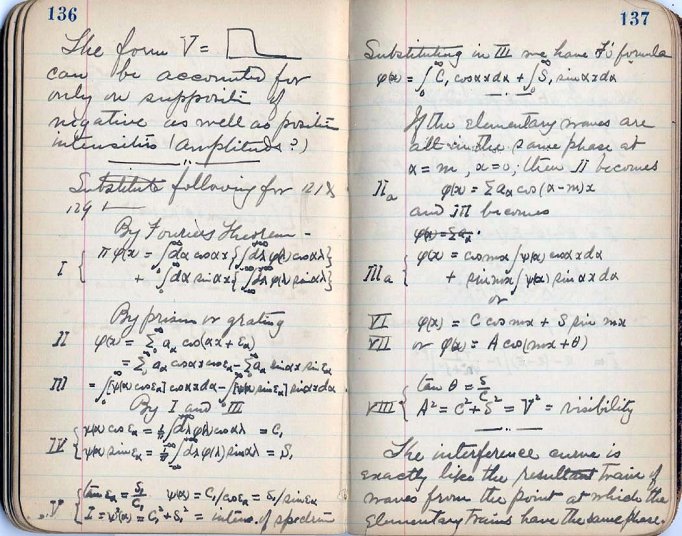 136
The form V =
can be accounted for
only on supposition of
negative as well as positive
intensities (amplitudes?)
Substitute following for 121 &
129
By Fouriers Theorem -
I { π φ(x) = ∫dα cosαx {∫dλ φ(λ) cosαλ}
+ ∫dα sinαx {∫dλ φ(λ) sinαλ}
By prism or grating
II φ(x) = Σ aα cos(αx + εα)
= Σ aα cosαx cosεα - Σ aα sinαx sinεα
III = ∫[ψ(α) cosεα] cosαx dα - ∫[ψ(α) sinεα] sinαx dα
By I and III
IV { ψ(α) cosεα = 1/π ∫dλ φ(λ) cosαλ = C₁
ψ(α) sinεα = 1/π ∫dλ φ(λ) sinαλ = S₁
V { tan εα = S₁/C₁ ψ(α) = C₁/cosεα = S₁/sinεα
I = ψ²(α) = C₁² + S₁² = intens. of spectrum
137
Substituting in III we have formula
φ(x) = ∫ C₁ cosαx dα + ∫ S₁ sinαx dα
If the elementary waves are
all in the same phase at
α = m, x = 0; then II becomes
IIa φ(x) = Σ aα cos(α-m)x
and III becomes
φ(x) = Σ aα
IIIa { φ(x) = cosmx ∫ψ(α) cosαx dα
+ sinmx ∫ψ(α) sinαx dα
or
VI φ(x) = C cos mx + S sin mx
VII or φ(x) = A cos(mx + θ)
VIII { tan θ = S/C
A² = C² + S² = V² = visibility
The interference curve is
exactly like the resultant train of
waves from the point at which the
elementary trains have the same phase.